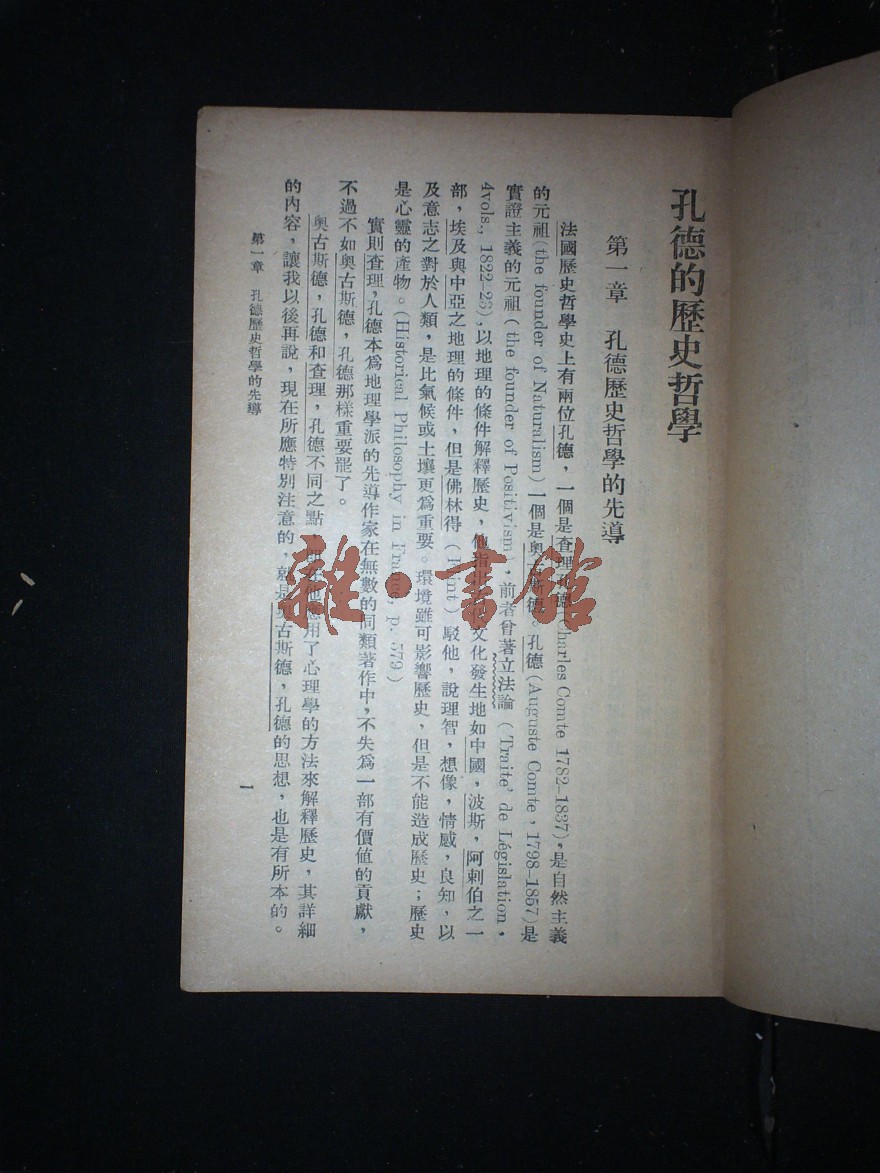 孔德的歷史哲學
第一章 孔德歷史哲學的先導
法國歷史哲學史上有兩位孔德，一個是查理 孔德(Charles Comte 1782–1837)，是自然主義
的元祖(the founder of Naturalism)一個是奧古斯德。孔德(Auguste Comte，1798–1857)是
實證主義的元祖(the founder of Positivism)，前者曾著立法論(Traite' de Législation，
4vols., 1822–23)，以地理的條件解釋歷史，他指出 文化發生地如中國，波斯，阿剌伯之一
部，埃及與中亞之地理的條件，但是佛林得(Flint)駁他，說理智，想像，情感，良知，以
及意志之對於人類，是比氣候或土壤更爲重要。環境雖可影響歷史，但是不能造成歷史；歷史
是心靈的產物。(Historical Philosophy in France, p. 579)
實則查理，孔德本爲地理學派的先導作家在無數的同類著作中，不失爲一部有價値的貢獻，
不過不如奧古斯德，孔德那樣重要罷了。
奧古斯德，孔德和查理，孔德不同之點，卽在他應用了心理學的方法來解釋歷史，其詳細
的內容，讓我以後再說，現在所應特別注意的，就是奧古斯德，孔德的思想，也是有所本的。
第一章 孔德歷史哲學的先導
1
雜·書館